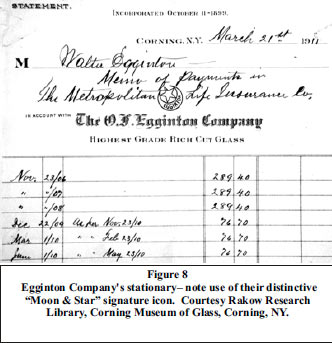 STATEMENT.
INCORPORATED OCTOBER 11-1899.
CORNING, N.Y. March 21st 1911
M Walter Egginton
Memo of Payments in
The Metropolitan Life Insurance Co.
IN ACCOUNT WITH The O.F. Egginton Company
HIGHEST GRADE RICH CUT GLASS
Nov. 23/06 289.40
" " /07 289.40
" " /08 289.40
Dec 22/09 As per Nov. 23/10 76 70
Mar 1/10 " " Feb 23/10 76 70
June 1/10 " " May 23/10 76 70
Figure 8
Egginton Company's stationary– note use of their distinctive
“Moon & Star” signature icon. Courtesy Rakow Research
Library, Corning Museum of Glass, Corning, NY.